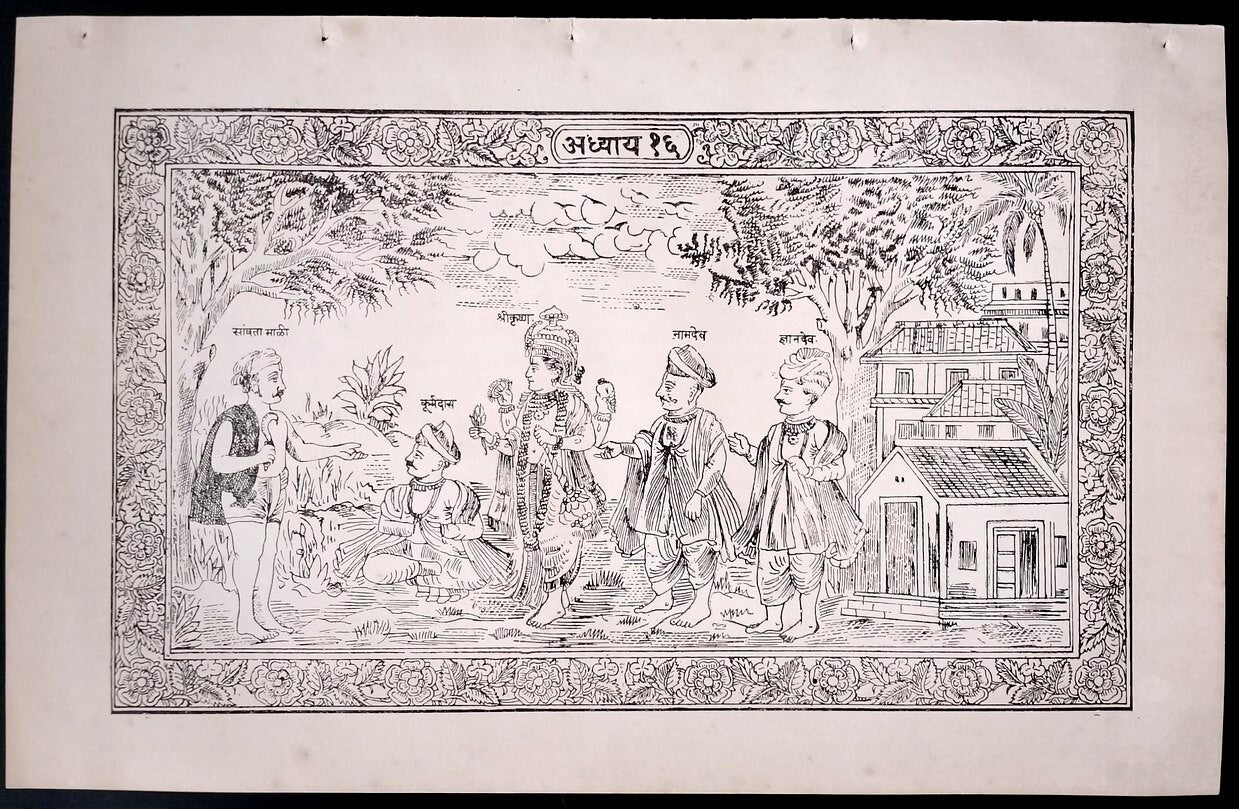 अध्याय १६
सांवता माळी
कूर्मदास
श्रीकृष्ण
नामदेव
ज्ञानदेव